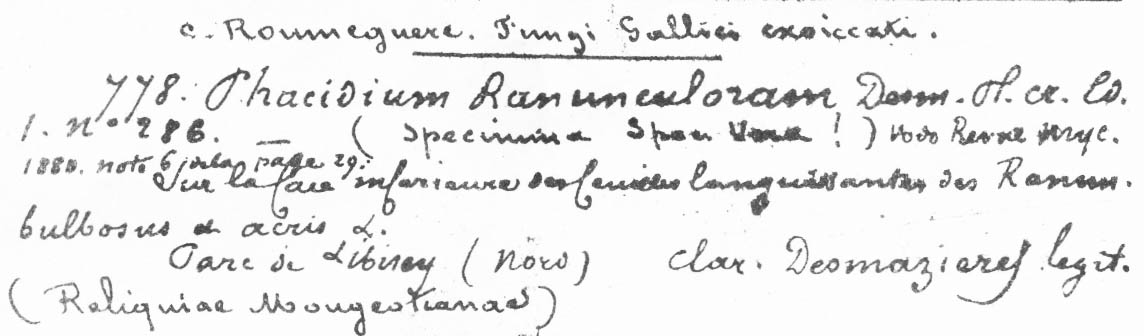 C. Roumeguere. Fungi Gallici exsiccati.
778. Phacidium Ranunculoram Desm. Pl. cr. Ed.
1. nº 286. — ( Specimina ! ) Revue Myc.
1880. note 6 de la page 29.
Sur la face inférieure des feuilles languissantes des Ranun.
bulbosus & acris L.
Parc de (Nord) Clar. Desmazieres legit.
(Reliquiae Mougeotianae)